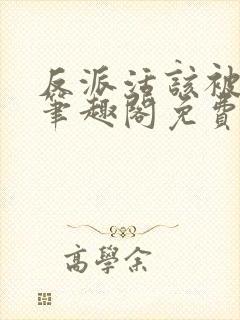 反派活該被
筆趣閣免費
高學余